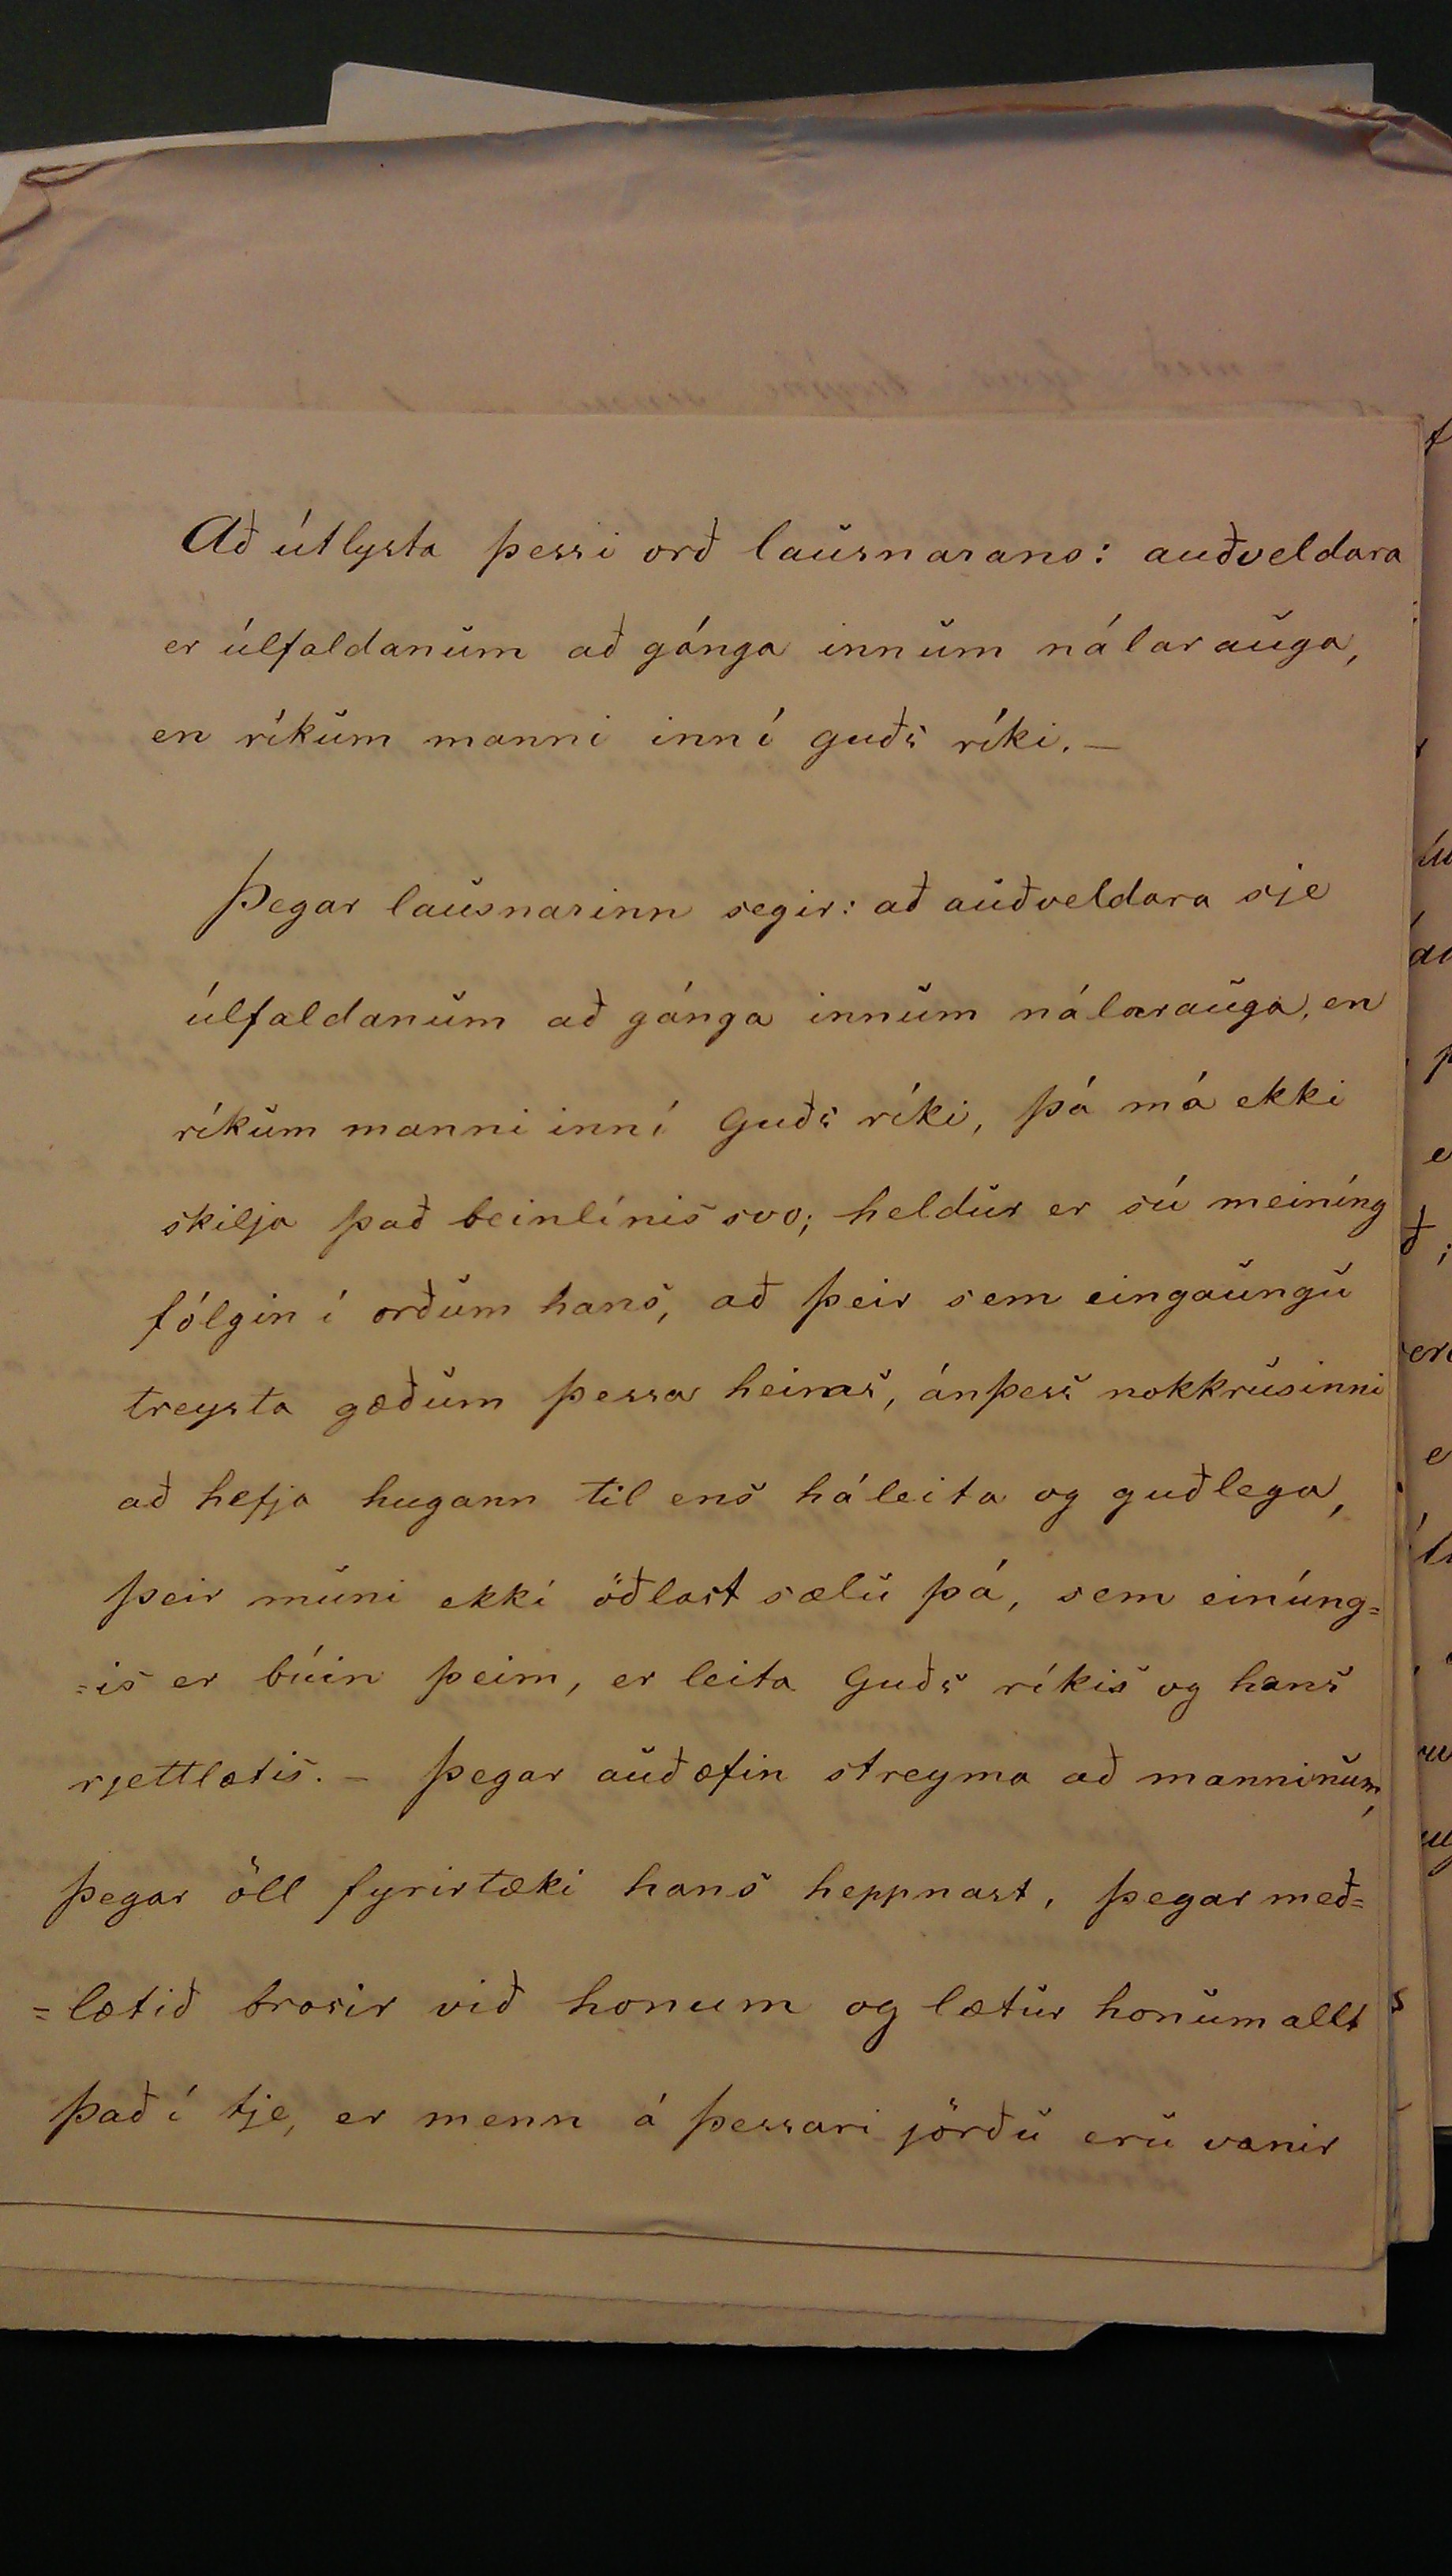 Að útlysta þessi orð lausnarans: auðveldara
er úlfaldanum að gánga innum nálarauga,
en ríkum manni inní guðs ríki. —
Þegar lausnarinn segir: að auðveldara sje
úlfaldanum að gánga innum nálarauga, en
ríkum manni inní Guðs ríki, þá má ekki
skilja það beinlínis svo; heldur er sú meiníng
fólgin í orðum hans, að þeir sem eingaungu
treysta gæðum þessa heims, ánþess nokkrusinni
að hefja hugann til ens háleita og guðlega,
þeir muni ekki öðlast sælu þá, sem einúng=
=is er búin þeim, er leita Guðs ríkis og hans
rjettlætis. — Þegar auðæfin streyma að manninum,
þegar öll fyrirtæki hans heppnast, þegar með=
=lætið brosir við honum og lætur honum allt
það í tje, er menn á þessari jörðu eru vanir